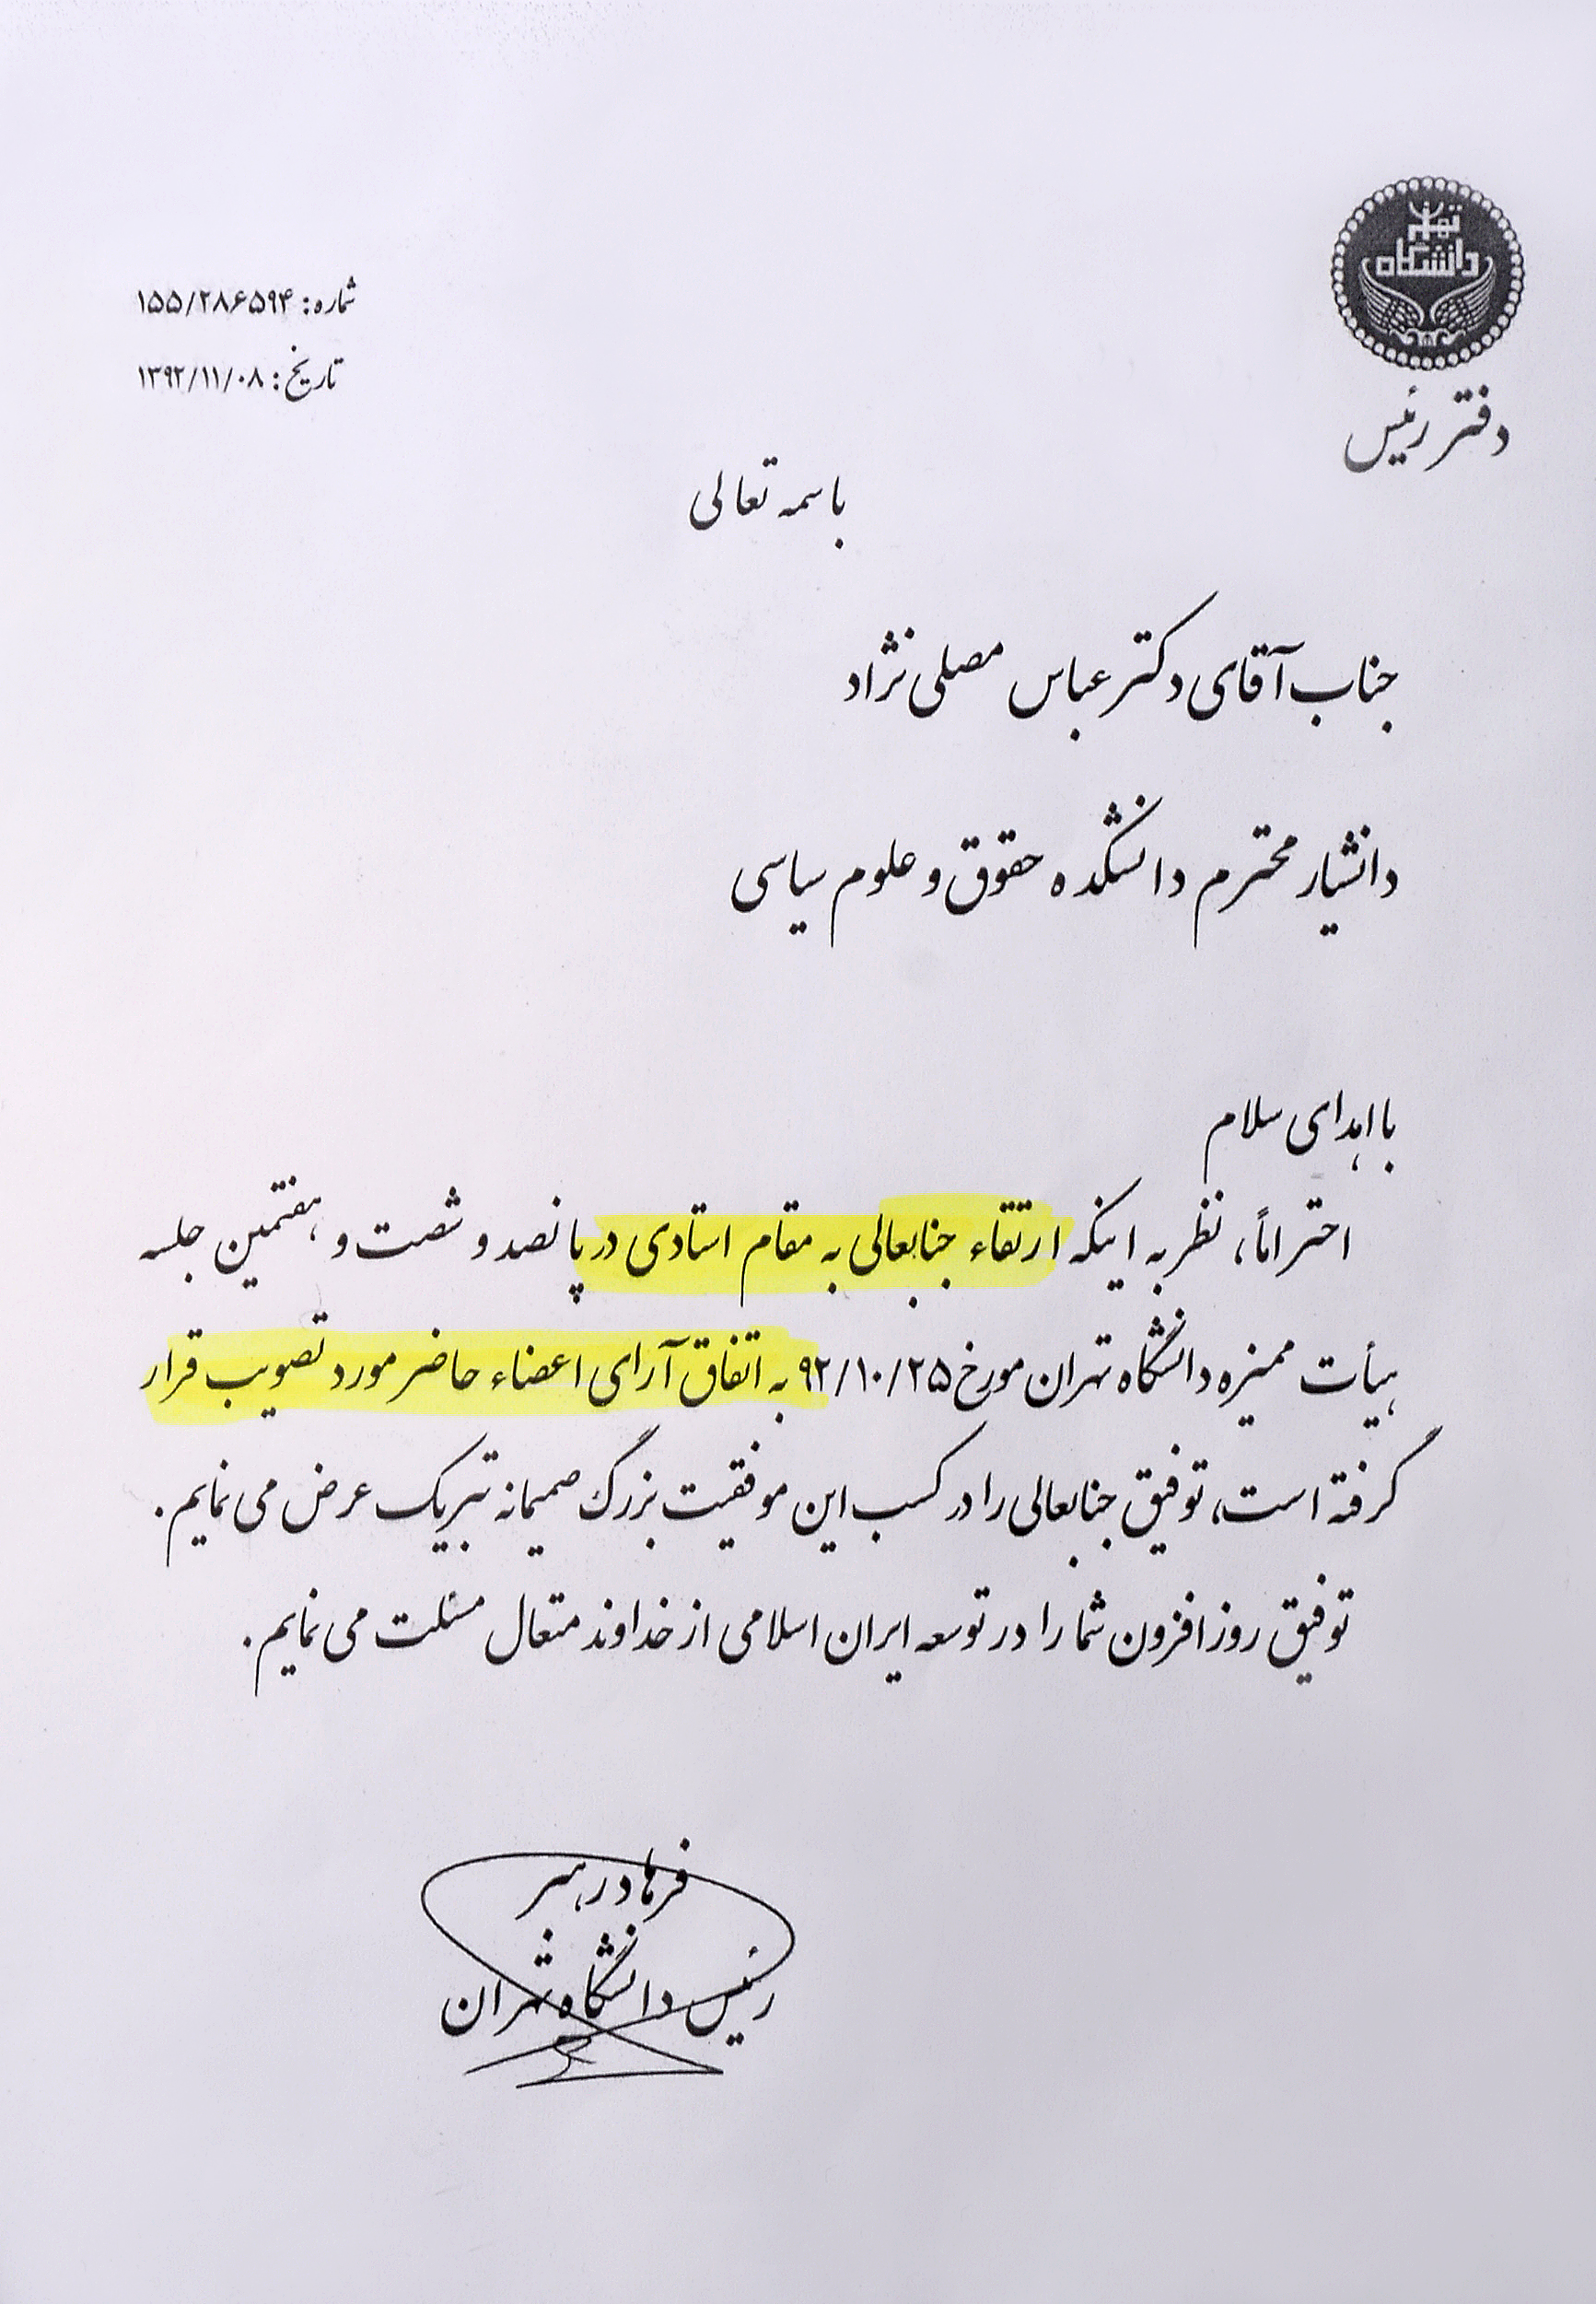 دانشگاه تهران
شماره: ۱۵۵/۲۸۶۵۹۴
تاریخ: ۱۳۹۲/۱۱/۰۸
دفتر رئیس
باسمه تعالی
جناب آقای دکتر عباس مصلی نژاد
دانشیار محترم دانشکده حقوق و علوم سیاسی
با اهدای سلام
احتراماً، نظر به اینکه ارتقاء جنابعالی به مقام استادی در پانصد و شصت و هفتمین جلسه
هیأت ممیزه دانشگاه تهران مورخ ۹۲/۱۰/۲۵ به اتفاق آرای اعضاء حاضر مورد تصویب قرار
گرفته است، توفیق جنابعالی را در کسب این موفقیت بزرگ صمیمانه تبریک عرض می نمایم.
توفیق روز افزون شما را در توسعه ایران اسلامی از خداوند متعال مسئلت می نمایم.
فرهاد رهبر
رئیس دانشگاه تهران